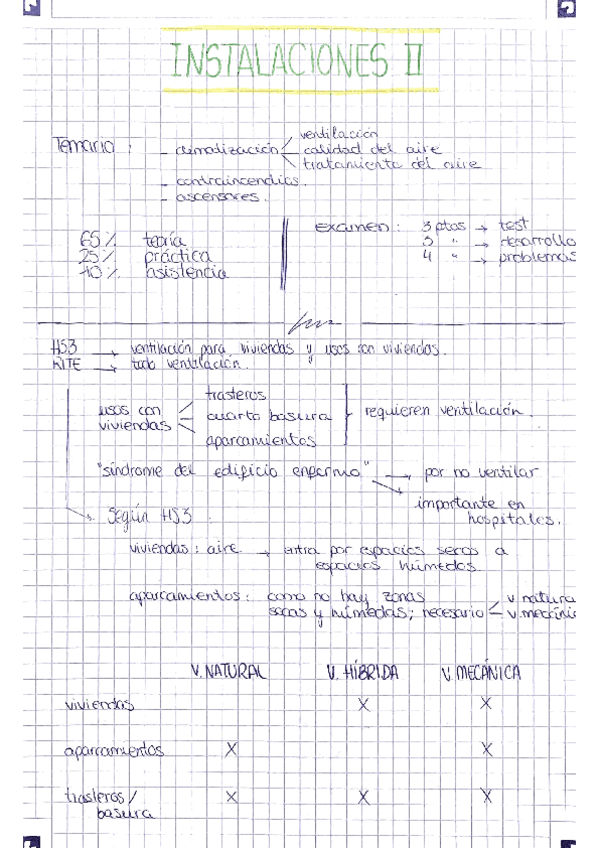 INSTALACIONES II
Temario: - climatización ventilación
calidad del aire
tratamiento del aire
- contraincendios.
- ascensores.
65% teoría
25% práctica
10% asistencia
examen: 3 ptos → test
3 " → desarrollo
4 " → problemas
HS3 → ventilación para viviendas y usos con viviendas.
RITE → todo ventilación.
usos con viviendas
trasteros
cuarto basura
aparcamientos
requieren ventilación.
"síndrome del edificio enfermo" → por no ventilar
importante en
hospitales.
Según HS3:
viviendas: aire → entra por espacios secos a
espacios húmedos.
aparcamientos: como no hay zonas
secas y húmedas; necesario
v. natura
v. mecánic
V. NATURAL V. HÍBRIDA V. MECÁNICA
viviendas X X
aparcamientos X X
trasteros/ X X X
basura